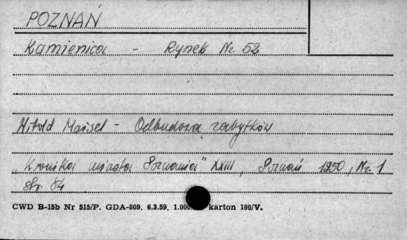 POZNAŃ
Kamienica - Rynek Nr. 52
Witold Maisel - Odbudowa zabytków
"Kronika miasta Poznania" XXIII, Poznań 1950, Nr. 1
str. 84
CWD B-15b Nr 515/P. GDA-809. 6.3.59. 1.000 karton 180/V.